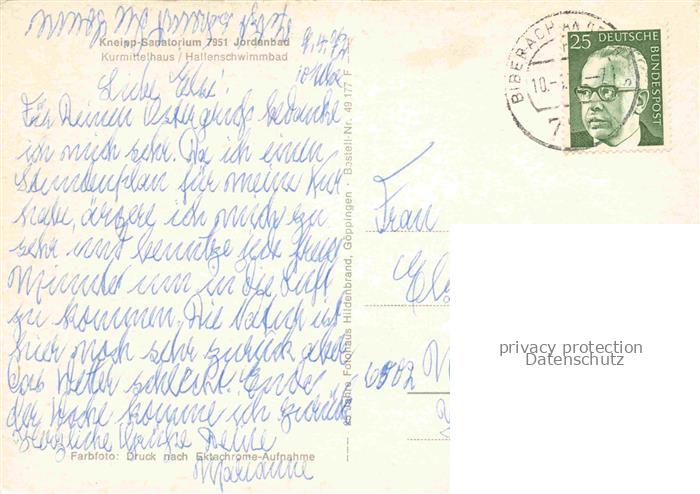 Jetzt scheint die Sonne
Kneipp-Sanatorium 7951 Jordanbad
Kurmittelhaus / Hallenschwimmbad
9.4.72
Liebe Else!
Für Deinen Ostergruß bedanke
ich mich sehr. Da ich einen
Stundenplan für meine Kur
habe, ärgere ich mich zu
sehr und benutze jede freie
Minute um in die Luft
zu kommen. Die Natur ist
hier noch sehr zurück aber
das Wetter schlecht. Ende
der Woche komme ich zurück
Herzliche Grüße Deine
Marianne
Farbfoto: Druck nach Ektachrome-Aufnahme
25 Jahre Fotohaus Hildenbrand, Göppingen · Bestell-Nr. 49 177 F
BIBERACH AN DER
10.
25 DEUTSCHE
BUNDESPOST
Frau
6502
privacy protection
Datenschutz